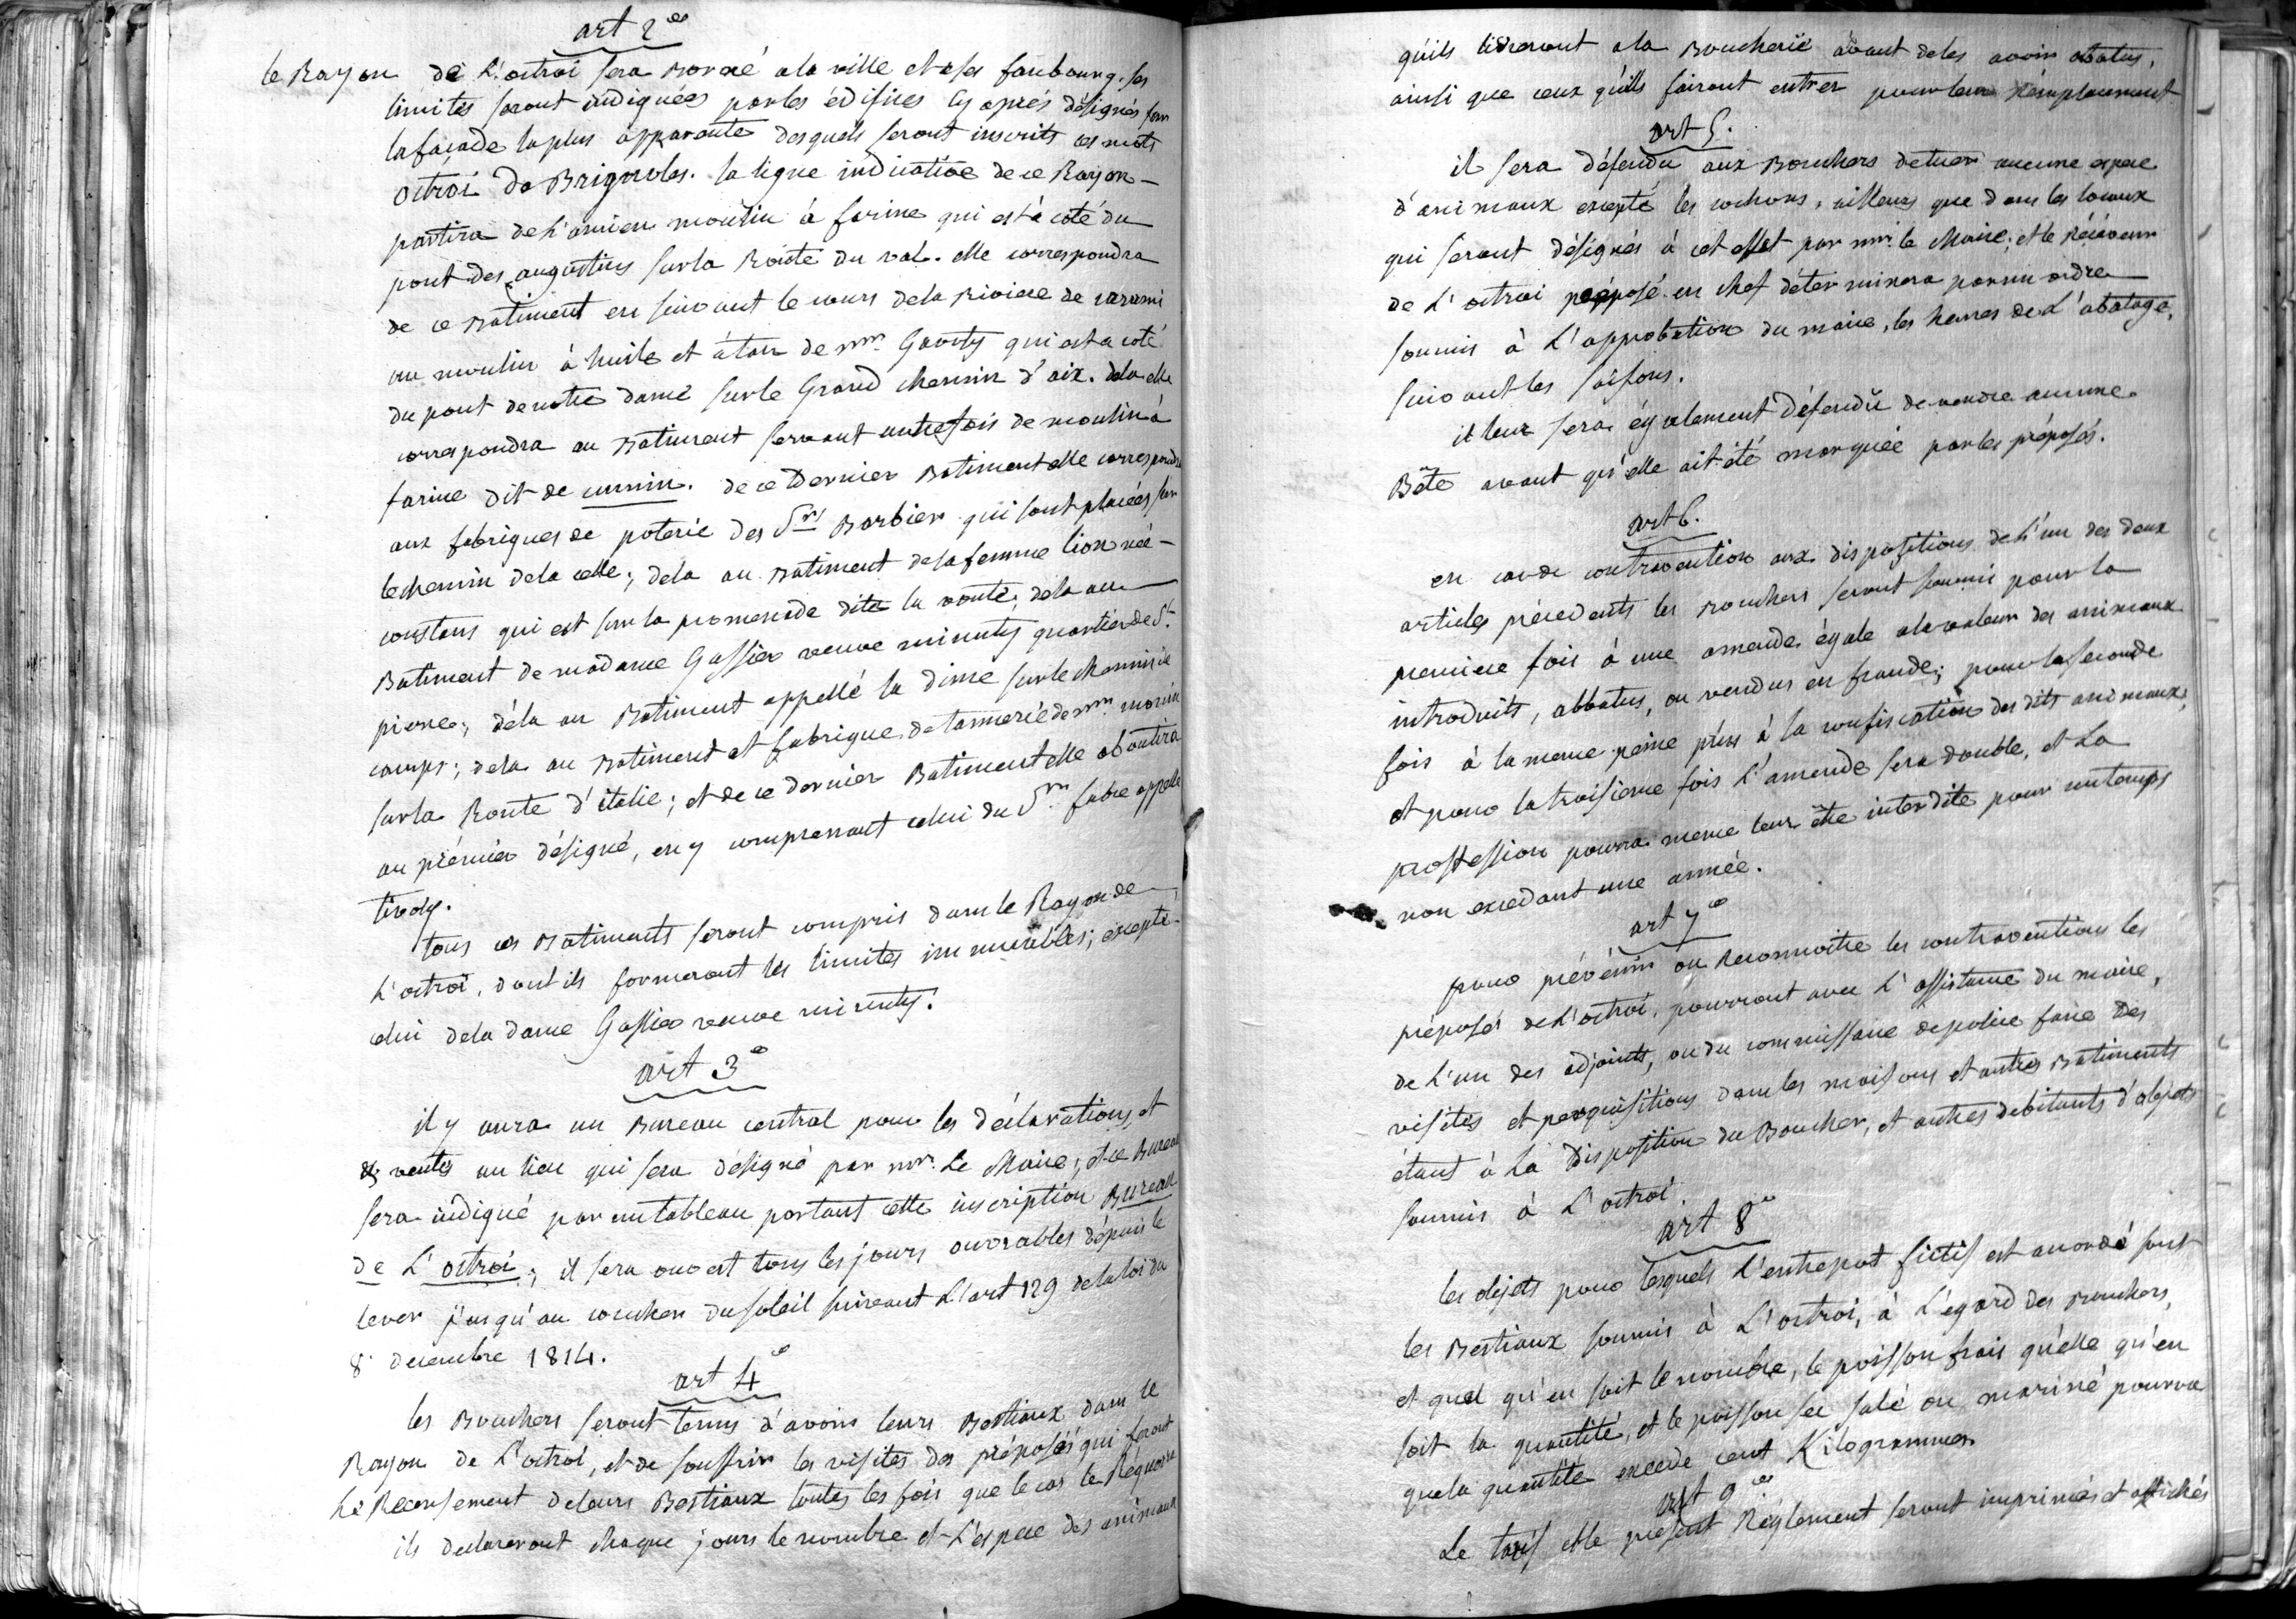 art 2e
le Rayon de L'octroi sera Borné a la ville et a ses faubourgs. ses
limites seront indiquées par les édifices cy aprés désignés sur
la façade la plus apparente desquels seront inscrits ces mots
octroi de Brignoles. la ligne indicative de ce Rayon
partira de L'ancien moulin à farine qui est à coté du
pont des augustins sur la Route du val. elle correspondra
de ce Batiment en suivant le cours de la Riviere de carami
au moulin à huile et à tan de mr. Gavoty qui est a coté
du pont de notre dame sur le Grand chemin d'aix. de la elle
correspondra au Batiment servant autrefois de moulin à
farine dit de cumin. de ce Dernier Batiment elle correspondra
aux fabriques de poterie des Srs Barbier qui sont placées sur
le chemin de la celle; de la au Batiment de la femme lion née
constans qui est sur la promenade dite la vente, de la au
Batiment de madame Gassier veuve minuty quartier de St.
pierre; déla au Batiment appellé la dime sur le chemin de
camps; dela au Batiment et fabrique de tannerie de mr. morin
sur la Route d'italie; et de ce dernier Batiment elle aboutira
au prémier désigné, en y comprenant celui du Sr. fabre appellé
tivoly.
tous ces Batiments seront compris dans le Rayon de
L'octroi, dont ils formeront les limites immuables; excepté
celui de la dame Gassier veuve minuty.
art 3e
il y aura un Bureau central pour les déclarations, et
& ventes au lieu qui sera désigné par mr. Le Maire; et ce Bureau
sera indiqué par un tableau portant cette inscription Bureau
de L'octroi; il sera ouvert tous les jours ouvrables dépuis le
lever j'usqu'au coucher du soleil suivant L'art 129 de la loi du
8 decembre 1814.
art 4e
les Bouchers seront tenus d'avoir leurs Bestiaux dans le
Rayon de L'octroi, et de souffrir les visites des préposés qui feront
Le Recensement de leurs Bestiaux toutes les fois que le cas le Réquerra
ils declareront chaque jours le nombre et L'espece des animaux
qu'ils livreront a la Boucherie avant de les avoir abatus,
ainsi que ceux qu'ils fairont entrer pour leur rémplacement.
art 5.
il sera défendu aux Bouchers de tuer aucune espece
d'animaux excepté les cochons, ailleurs que dans les locaux
qui seront désignés à cet effet par mr. le Maire; et le Récéveur
de L'octroi préposé en chef déterminera par un ordre
soumis à L'approbation du maire, les heures de L'abatage,
suivant les saisons.
il leur sera également défendu de vendre aucune
Bête avant qu'elle ait été marquée par les préposés.
art 6.
en cas de contravention aux dispositions de L'un des deux
articles précedents les Bouchers seront soumis pour la
premiere fois à une amende égale a la valeur des animaux
introduits, abbatus, ou vendus en fraude; pour la seconde
fois à la meme peine plus à la confiscation des dits animaux,
et pour la troisieme fois L'amende sera double, et La
proffession pourra meme leur être interdite pour un temps
non excedant une année.
art 7e
pour prévénir ou Reconnoitre les contraventions les
préposés de L'octroi, pourront avec L'assistance du maire,
de L'un des adjoints, ou du commissaire de police faire des
visites et perquisitions dans les maisons et autres Batiments
étant à La Disposition du Boucher, et autres debitants d'objets
soumis à L'octroi.
art 8e
les objets pour lesquels L'entrepot fictif est accordé sont
les Bestiaux soumis à L'octroi, à L'egard des Bouchers,
et quel qu'en soit le nombre, le poisson frais quelle qu'en
soit la quantité, et le poisson sec salé ou mariné pourvu
que la quantité excede cent Kilogrammes
art 9e
Le tarif et le présent Réglement seront imprimés et affichés